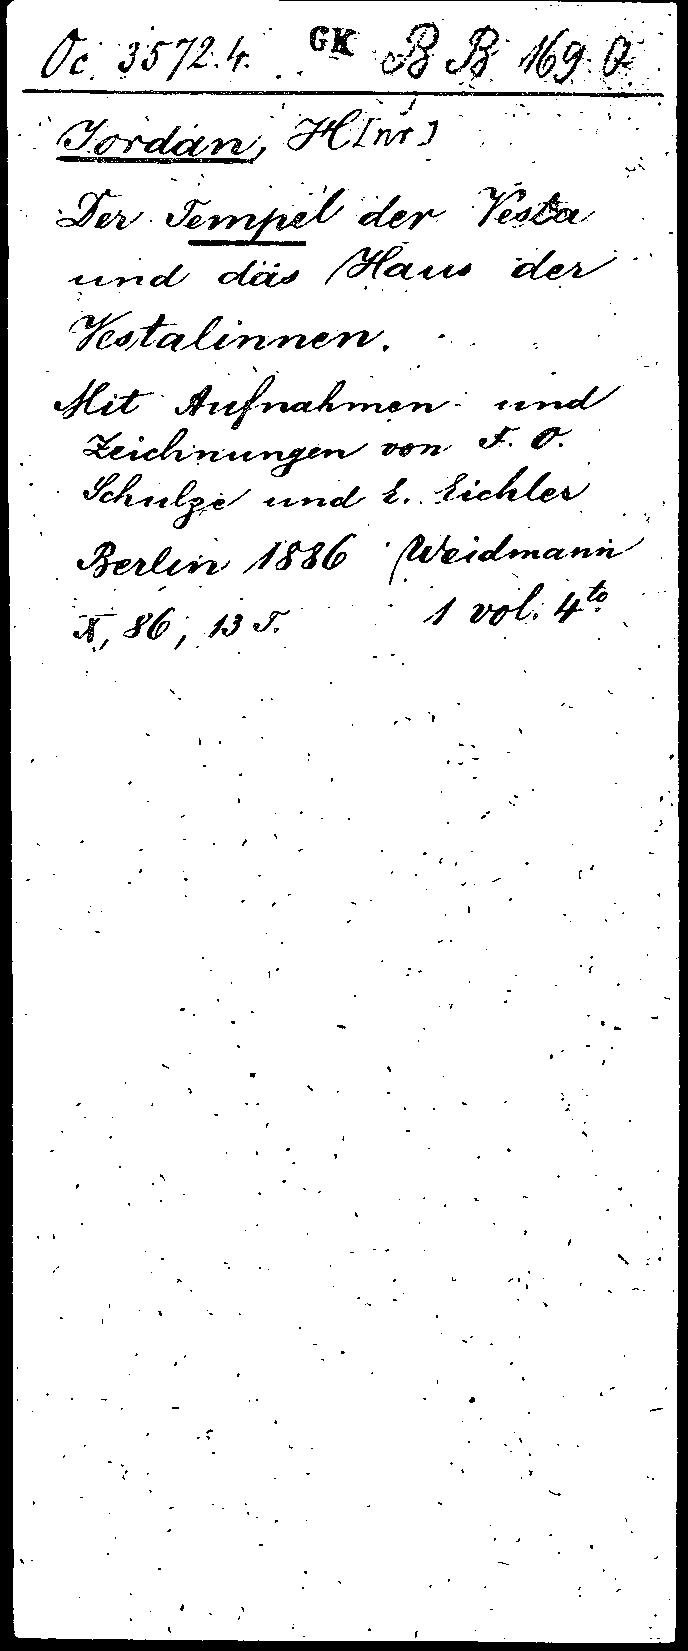 Oc. 3572.4. GK BB 169 O
Jordan, H[nr]
Der Tempel der Vesta
und das Haus der
Vestalinnen.
Mit Aufnahmen und
Zeichnungen von F. O.
Schulze und E. Eichler
Berlin 1886 Weidmann
X, 86, 13 T. 1 vol. 4to.